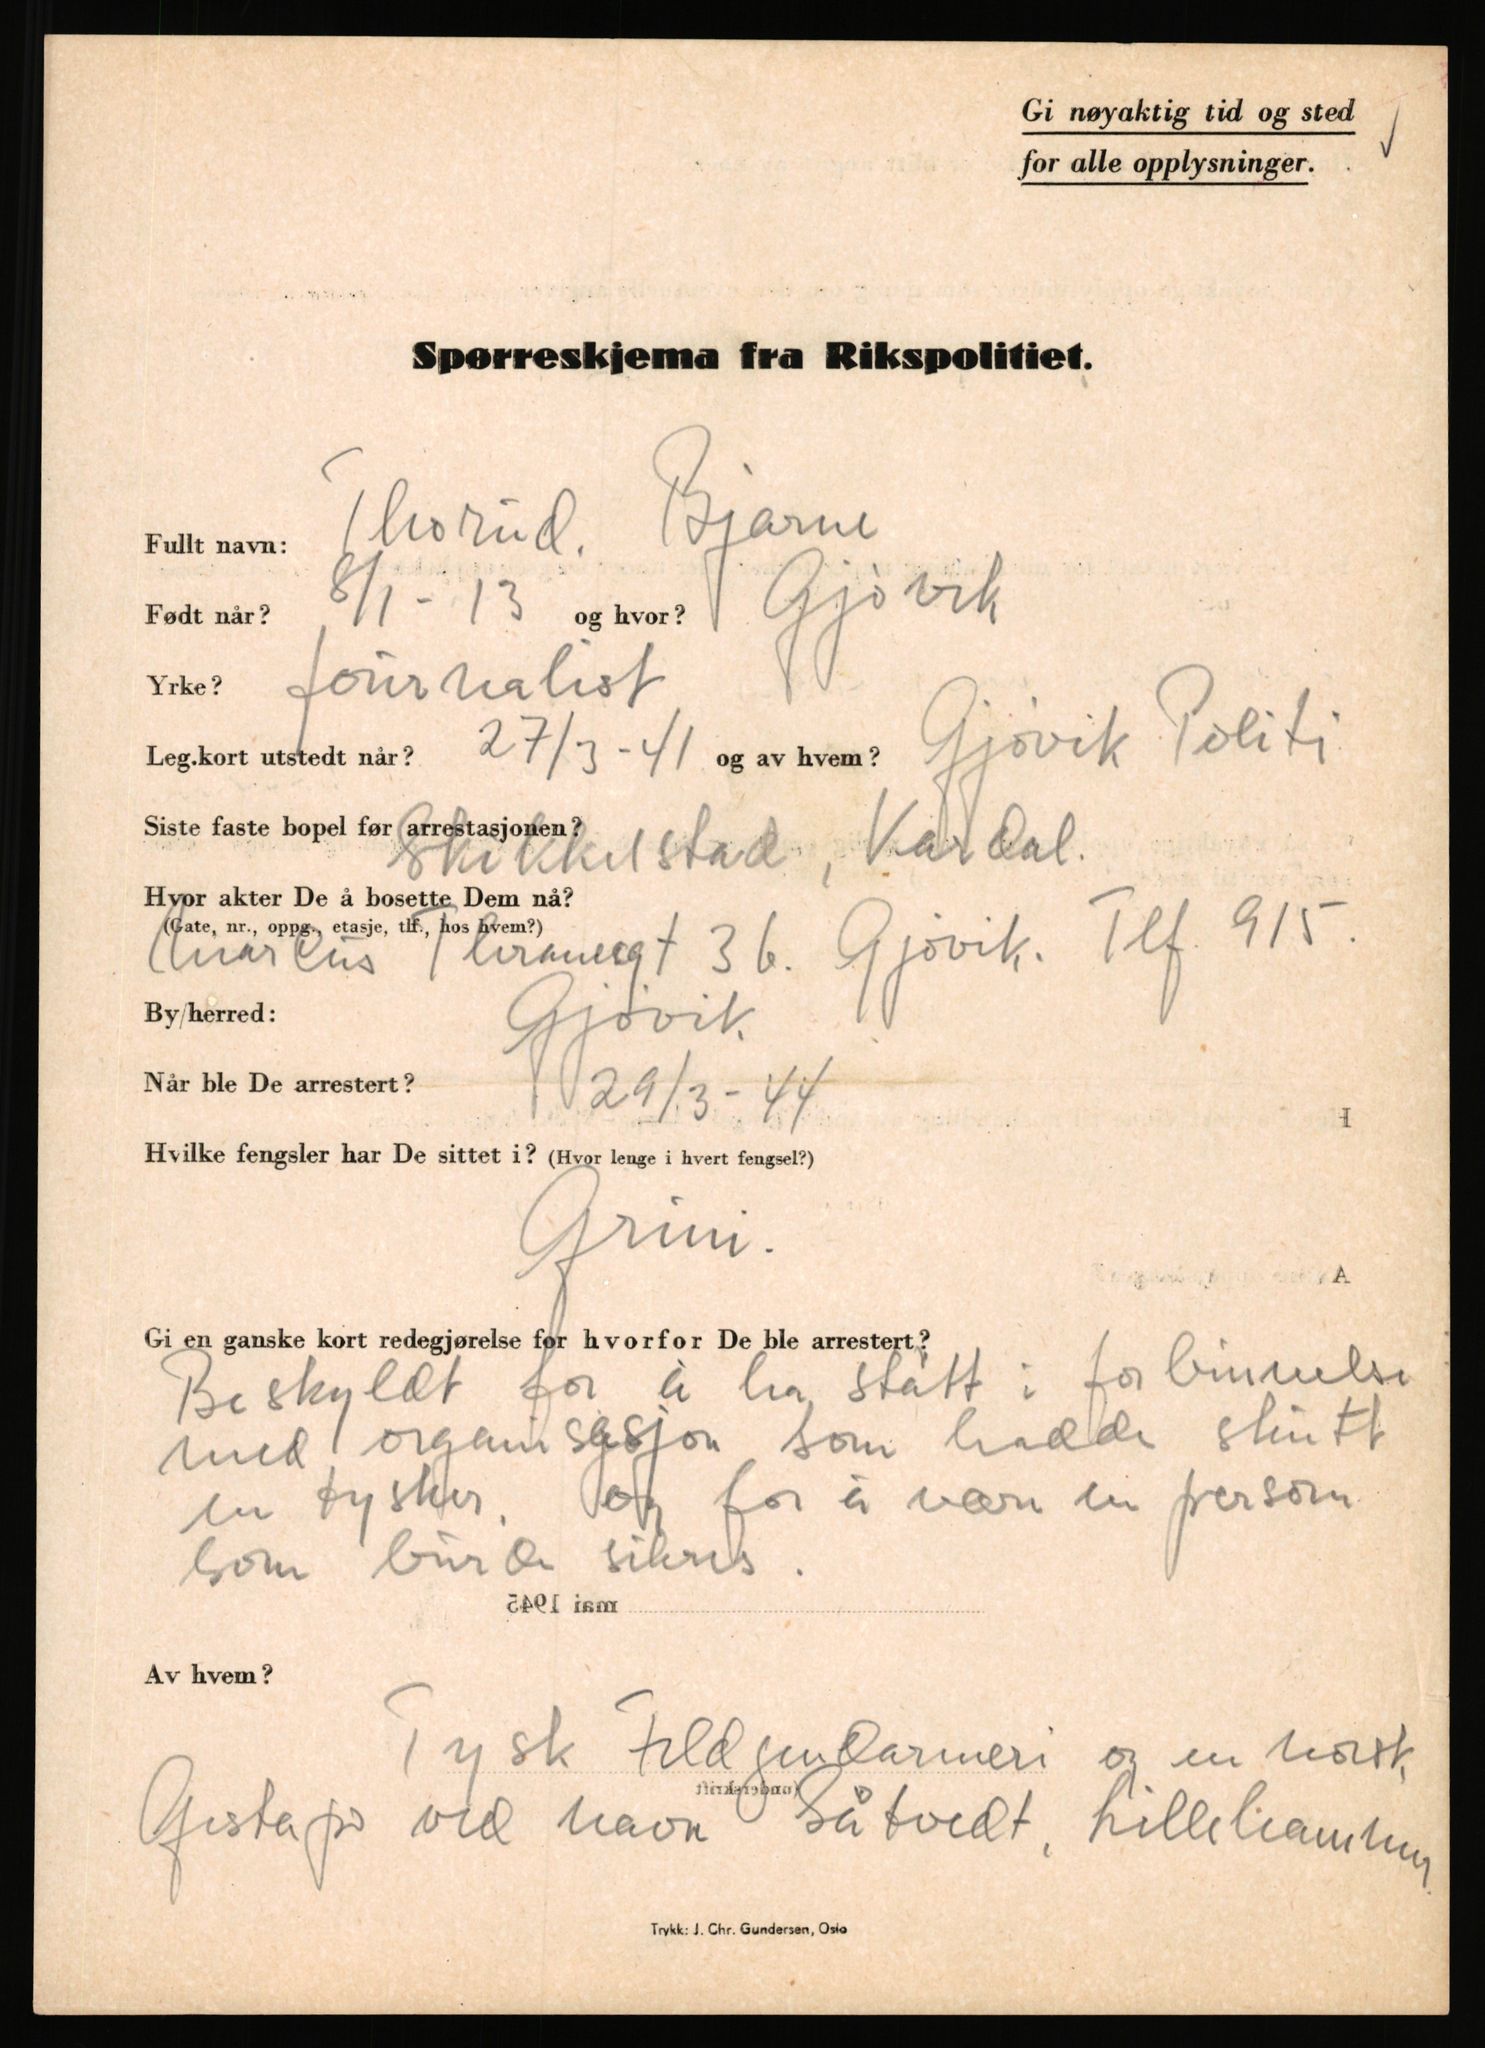 Gi nøyaktig tid og sted
for alle opplysninger.
Spørreskjema fra Rikspolitiet.
Fullt navn: Thorud, Bjarne
Født når? 8/1 - 13 og hvor? Gjøvik
Yrke? journalist
Leg.kort utstedt når? 27/3 - 41 og av hvem? Gjøvik Politi
Siste faste bopel før arrestasjonen? Skikkelstad, Vardal.
Hvor akter De å bosette Dem nå?
(Gate, nr., oppg., etasje, tlf., hos hvem?)
Marcus Thranesgt 36. Gjøvik. Tlf. 915.
By/herred: Gjøvik.
Når ble De arrestert? 29/3 - 44
Hvilke fengsler har De sittet i? (Hvor lenge i hvert fengsel?)
Grini.
Gi en ganske kort redegjørelse for hvorfor De ble arrestert?
Beskyldt for å ha stått i forbinnelse
med organisasjon som hadde skutt
en tysker, og for å være en person
som burde sikres.
mai 1945
Av hvem?
Tysk Feldgendarmeri og en norsk
(underskrift)
Gestapo ved navn Såtvedt, Lillehammer.
Trykk: J. Chr. Gundersen, Oslo